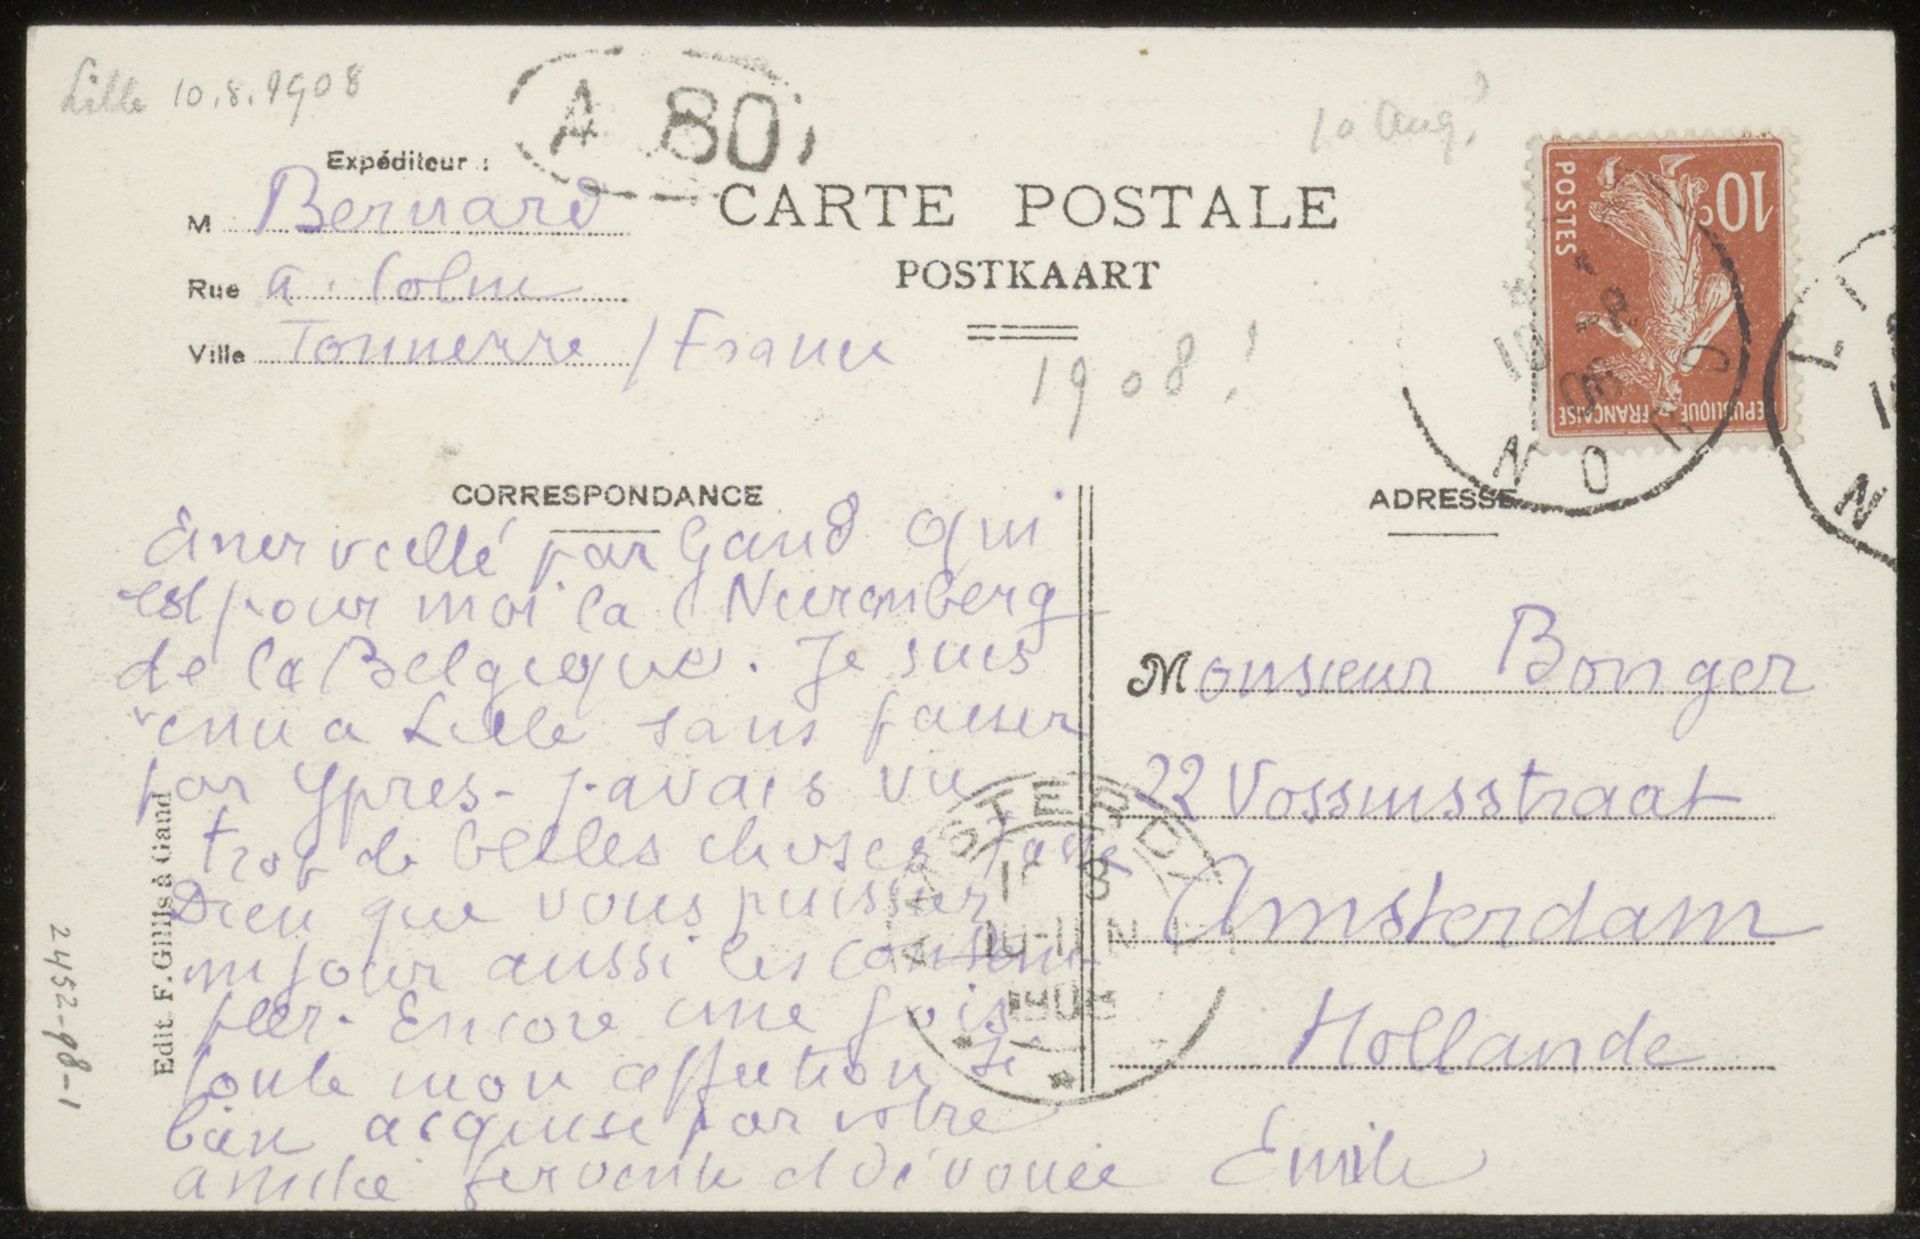 Lille 10.8.1908
A 80
10 Aug?
Expéditeur :
M Bernard
Rue a. Colm
Ville Tonnerre / France
CARTE POSTALE
POSTKAART
1908!
10c
POSTES
REPUBLIQUE FRANÇAISE
NORD
CORRESPONDANCE
Emerveillé par Gand qui
est pour moi la Nuremberg
de la Belgique. Je suis
venu a Lille sans passer
par Ypres - j'avais vu
trop de belles choses fasse
Dieu que vous puissiez
un jour aussi les contem
pler. Encore une fois
toute mon affection si
bien acquise par votre
amitié fervente et dévouée Emile
ADRESSE
Monsieur Bonger
22 Vossiusstraat
Amsterdam
Hollande
AMSTERDAM
10-11 N
1908
Edit. F. Gillis à Gand
2452-98-1